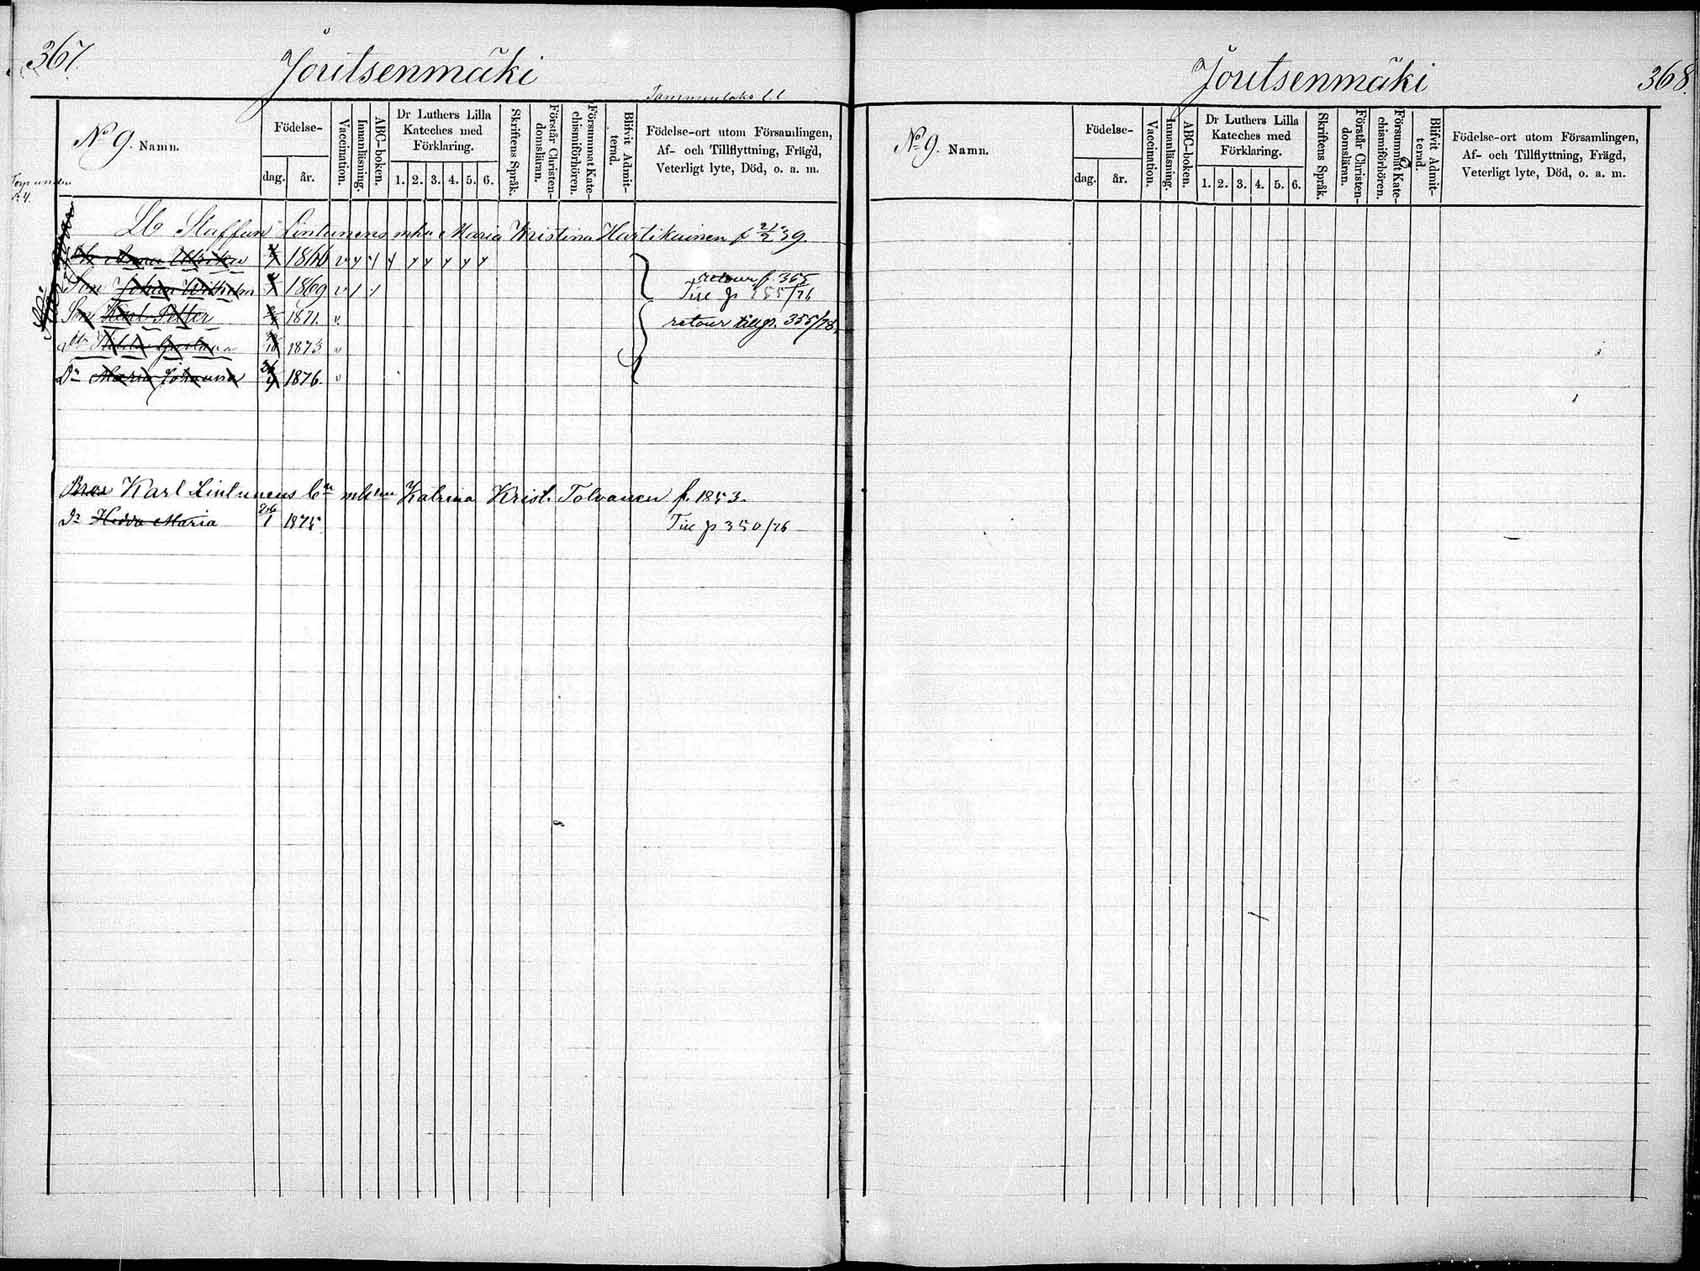 367.
Joutsenmäki
No 9. Namn.
Födelse-
dag. år.
Vaccination.
Innanläsning.
ABC-boken.
Dr Luthers Lilla
Kateches med
Förklaring.
1. 2. 3. 4. 5. 6.
Skriftens Språk.
Förstår Christen-
domsläran.
Försummat Kate-
chismiförhören.
Blifvit Admit-
terad.
Födelse-ort utom Församlingen,
Af- och Tillflyttning, Frägd,
Veterligt lyte, Död, o. a. m.
Lb Staffan Lintunens Maria Kristina Hartikainen f 39.
Anna Ulrika 1866
retour p. 365
Son Johan Wilhelm 1869
Till p 355/76
Son Karl Petter 1871.
retour till p. 355/78.
1873
Dr Maria Johanna 1876.
Karl Lintunens Katrina Krist. Tolvanen f. 1853.
Dr Hedda Maria 26/1 1875
Till p 350/76
Joutsenmäki
368.
No 9. Namn.
Födelse-
dag. år.
Vaccination.
Innanläsning.
ABC-boken.
Dr Luthers Lilla
Kateches med
Förklaring.
1. 2. 3. 4. 5. 6.
Skriftens Språk.
Förstår Christen-
domsläran.
Försummat Kate-
chismiförhören.
Blifvit Admit-
ternd.
Födelse-ort utom Församlingen,
Af- och Tillflyttning, Frägd,
Veterligt lyte, Död, o. a. m.